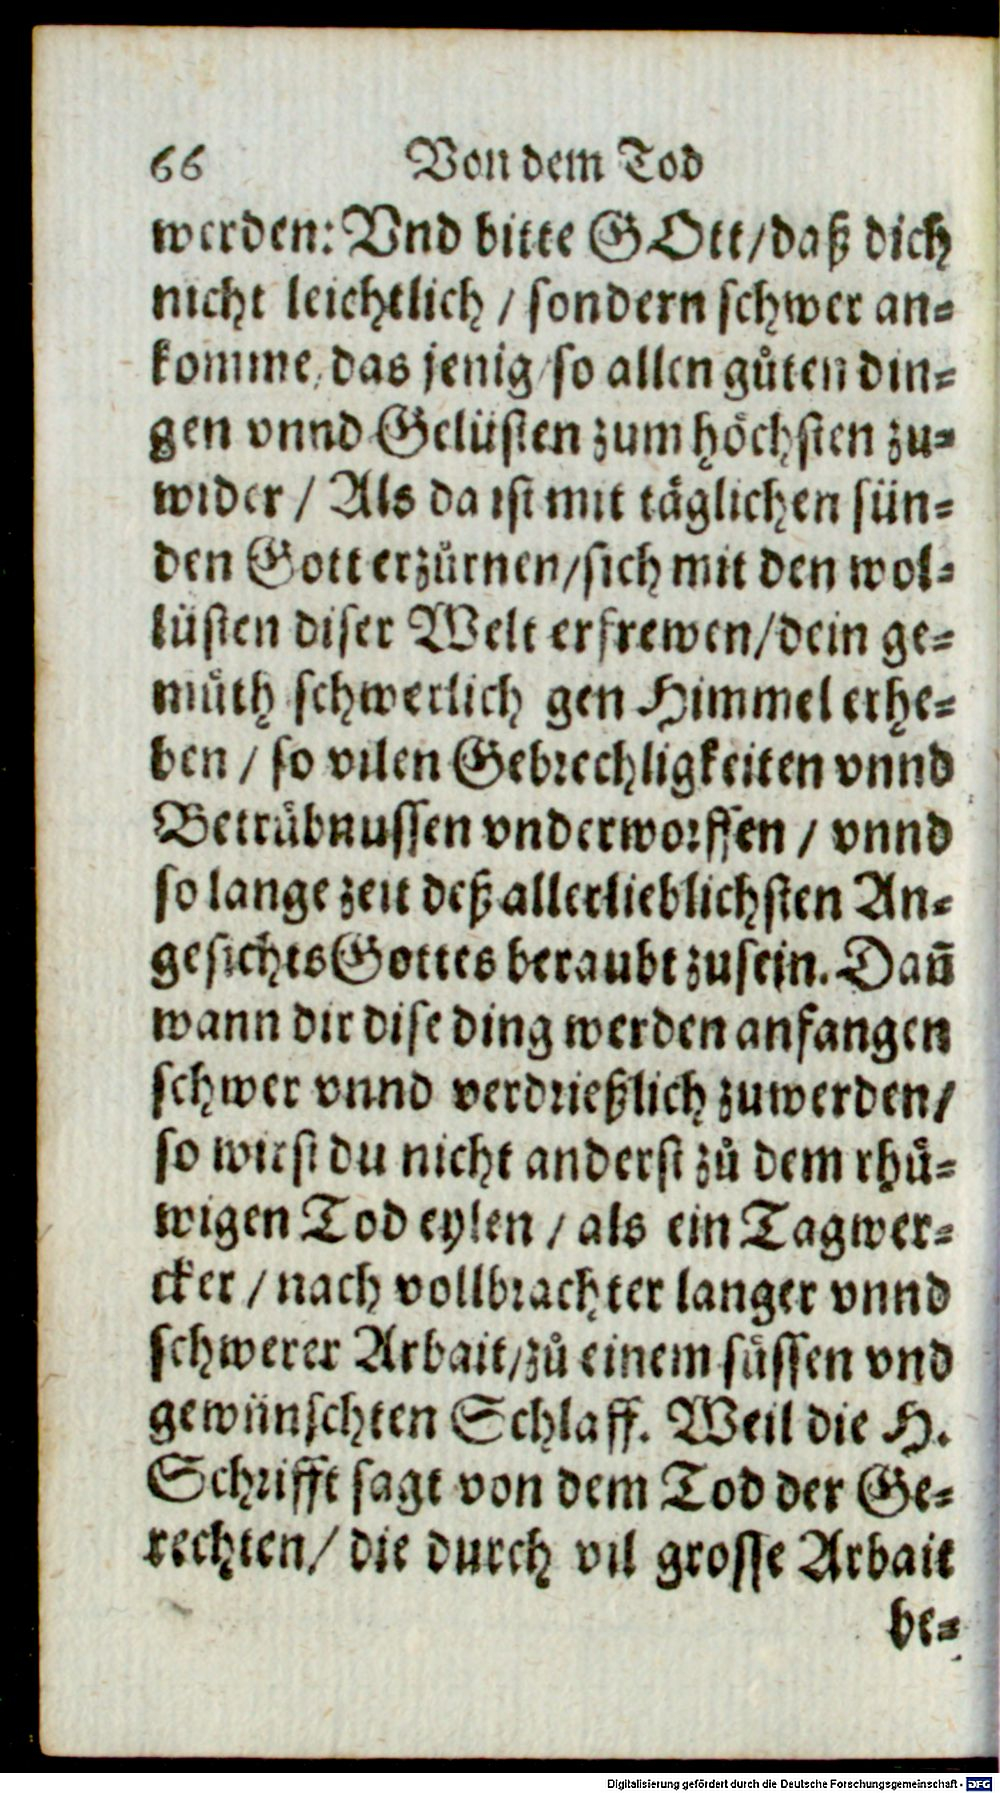 66 Von dem Tod
werden: Vnd bitte GOtt/daß dich
nicht leichtlich / sondern schwer an-
komme, das jenig/so allen gůten din-
gen vnnd Gelüsten zum höchsten zu-
wider / Als da ist mit täglichen sün-
den Gott erzůrnen/sich mit den wol-
lüsten diser Welt erfrewen/dein ge-
můth schwerlich gen Himmel erhe-
ben / so vilen Gebrechligkeiten vnnd
Betrůbnussen vnderworffen / vnnd
so lange zeit deß allerlieblichsten An-
gesichts Gottes beraubt zusein. Dañ
wann dir dise ding werden anfangen
schwer vnnd verdrießlich zuwerden/
so wirst du nicht anderst zů dem rhů-
wigen Tod eylen / als ein Tagwer-
cker / nach vollbrachter langer vnnd
schwerer Arbait/zů einem sůssen vnd
gewünschten Schlaff. Weil die H.
Schrifft sagt von dem Tod der Ge-
rechten/ die durch vil grosse Arbait
be-
Digitalisierung gefördert durch die Deutsche Forschungsgemeinschaft - DFG